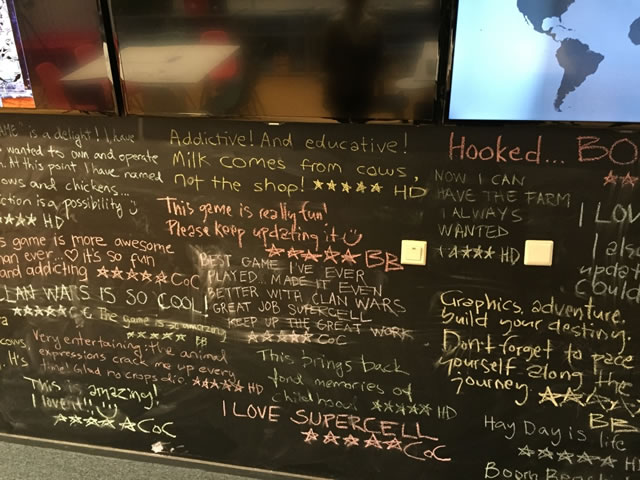 AME is a delight! I have
wanted to own and operate
. At this point I have named
ows and chickens...
ction is a possibility
★★★★ HD
Addictive! And educative!
Milk comes from cows,
not the shop! ★★★★★ HD
Hooked... BO
NOW I CAN
HAVE THE FARM
I ALWAYS
WANTED
★★★★★ HD
This game is really fun!
Please keep updating it
★★★★★ BB
s game is more awesome
an ever...♡ it's so fun
and addicting ★★★★★ CoC
BEST GAME I'VE EVER
PLAYED... MADE IT EVEN
BETTER WITH CLAN WARS
GREAT JOB SUPERCELL
KEEP UP THE GREAT WORK
★★★★★ CoC
CLAN WARS IS SO COOL!
★★★★★
The game is so amazing
★★★★★ BB
Very entertaining, the animal
expressions crack me up every
time! Glad no crops die. ★★★★★ HD
It's
This brings back
fond memories of
childhood ★★★★★ HD
This is amazing!
I love it!!
★★★★★ CoC
I LOVE SUPERCELL
★★★★★ CoC
I LO
I also
updat
could
Graphics, adventure,
build your destiny.
Don't forget to pace
yourself along the
journey ★★★★
BB
Hay Day is life
★★★★★ H
Boom Beach